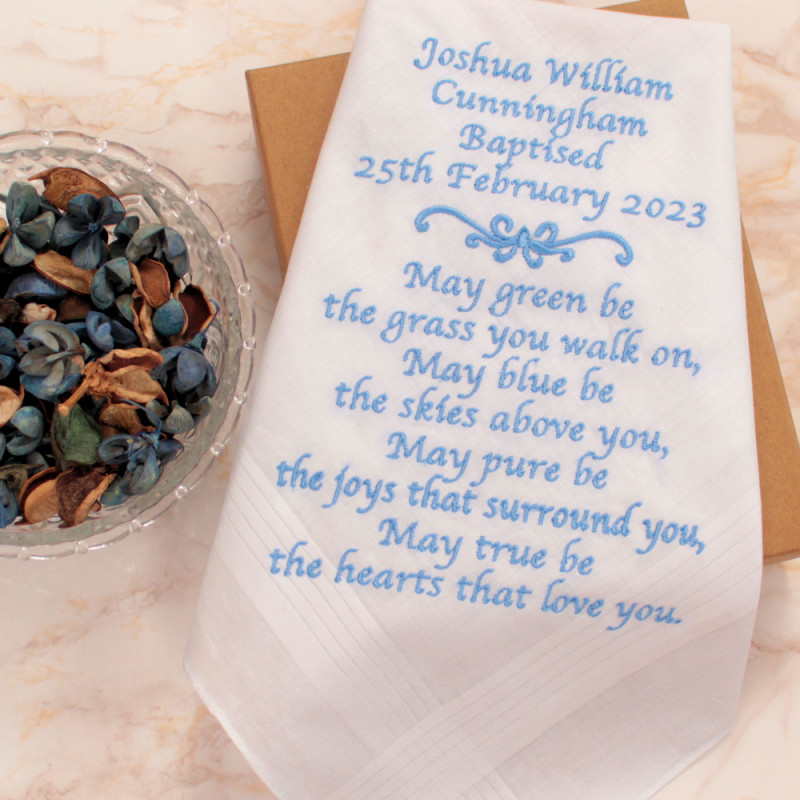 Joshua William
Cunningham
Baptised
25th February 2023
May green be
the grass you walk on,
May blue be
the skies above you,
May pure be
the joys that surround you,
May true be
the hearts that love you.